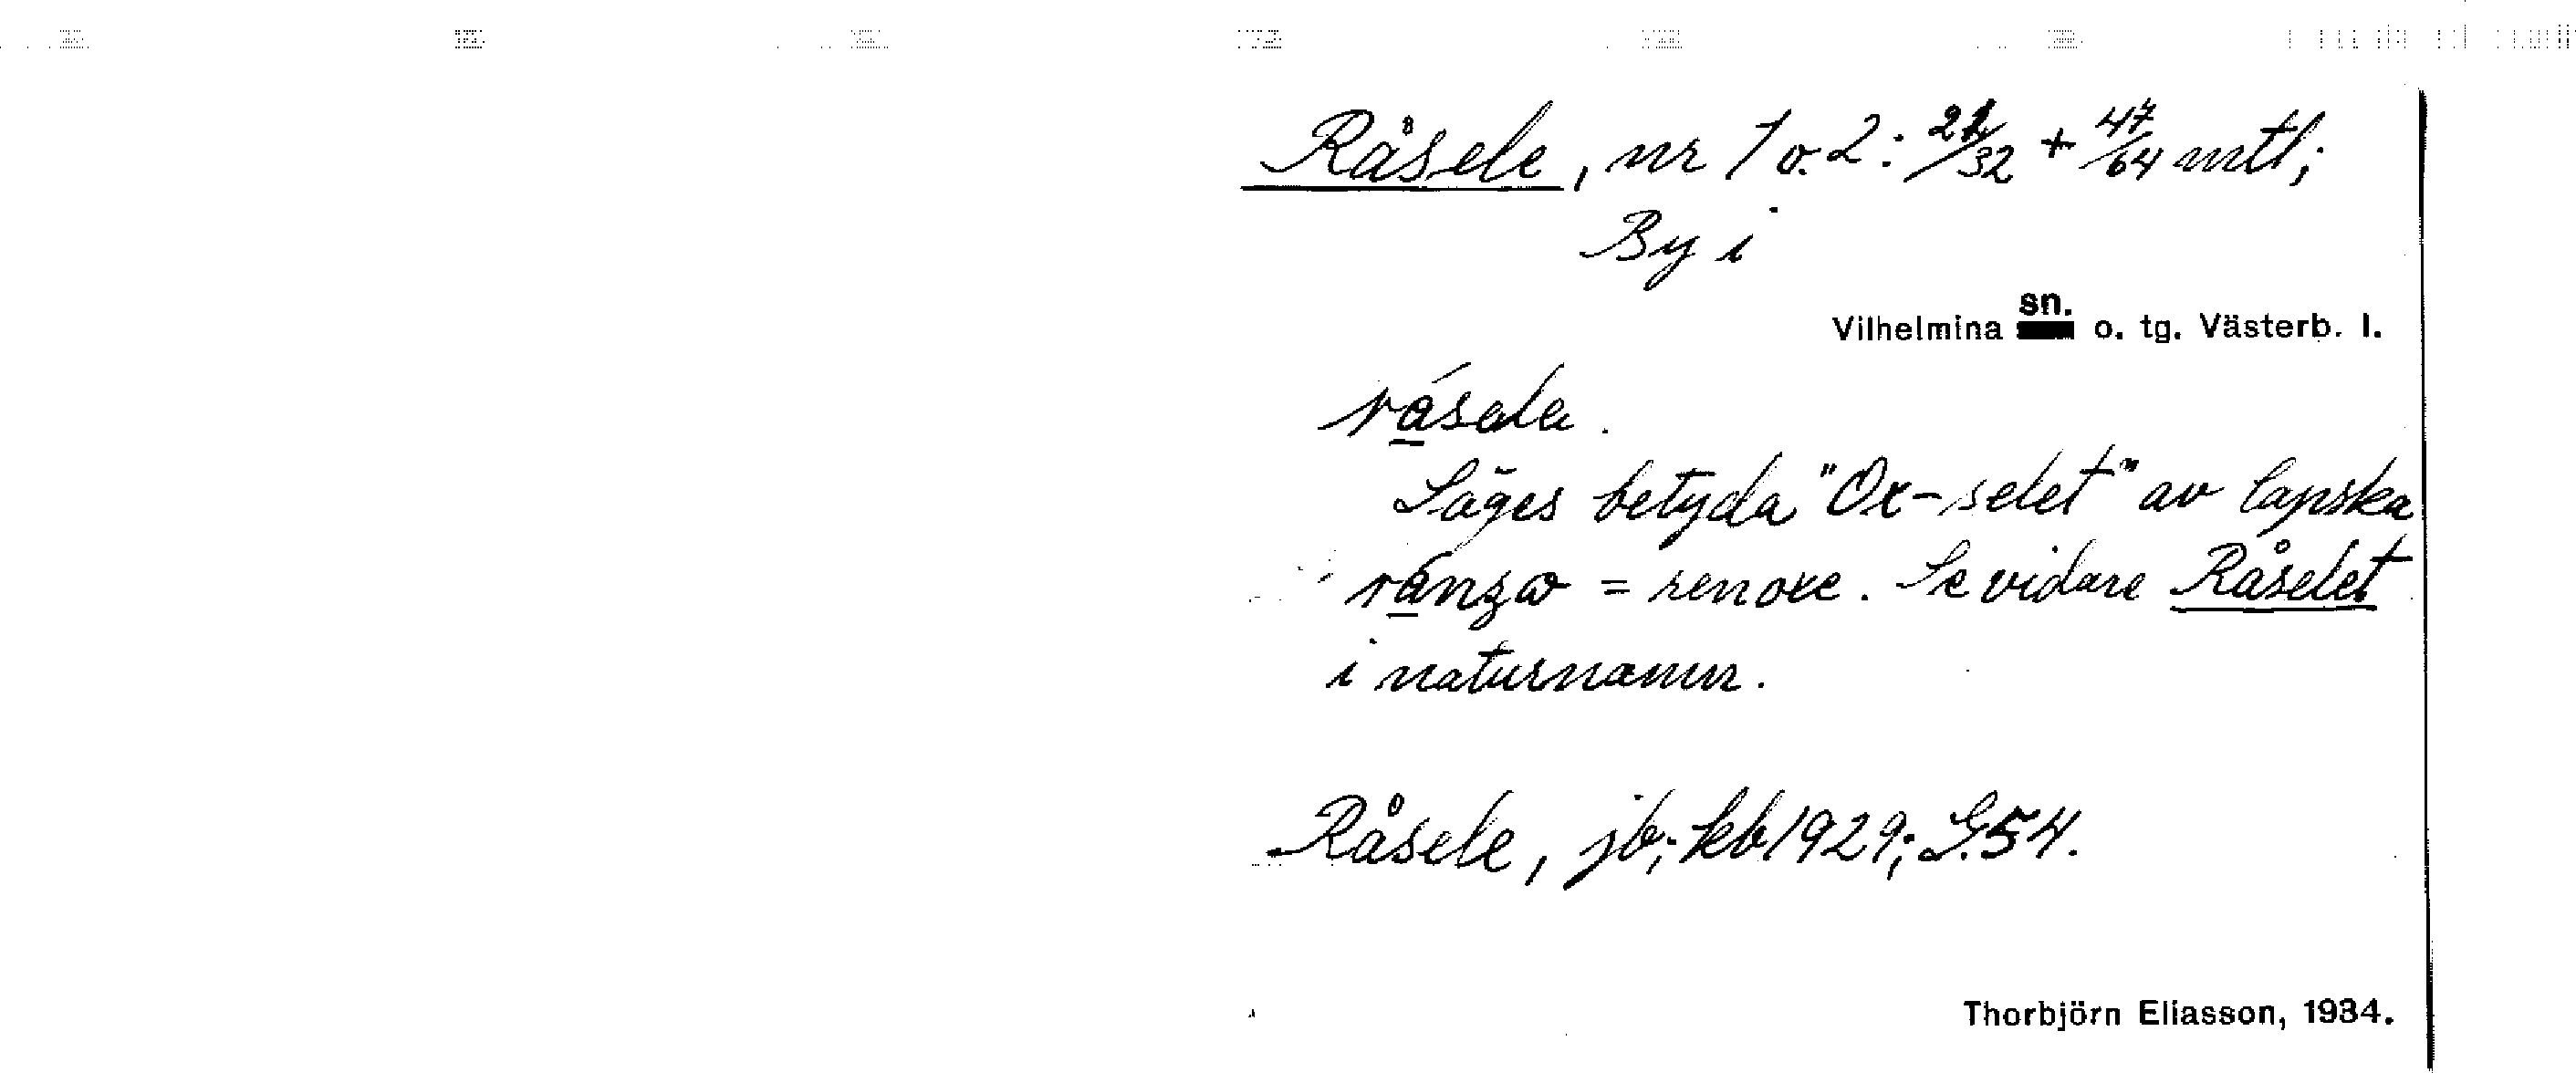 Råsele, nr 1 o. 2: 21/32 + 47/64 mtl;
By i
Vilhelmina sn. o. tg. Västerb. l.
råsele.
Säges betyda "Ox-selet" av lapska
= renoxe. Se vidare Råselet
i naturnamn.
Råsele, jb; kb 1929; G.54.
Thorbjörn Eliasson, 1934.